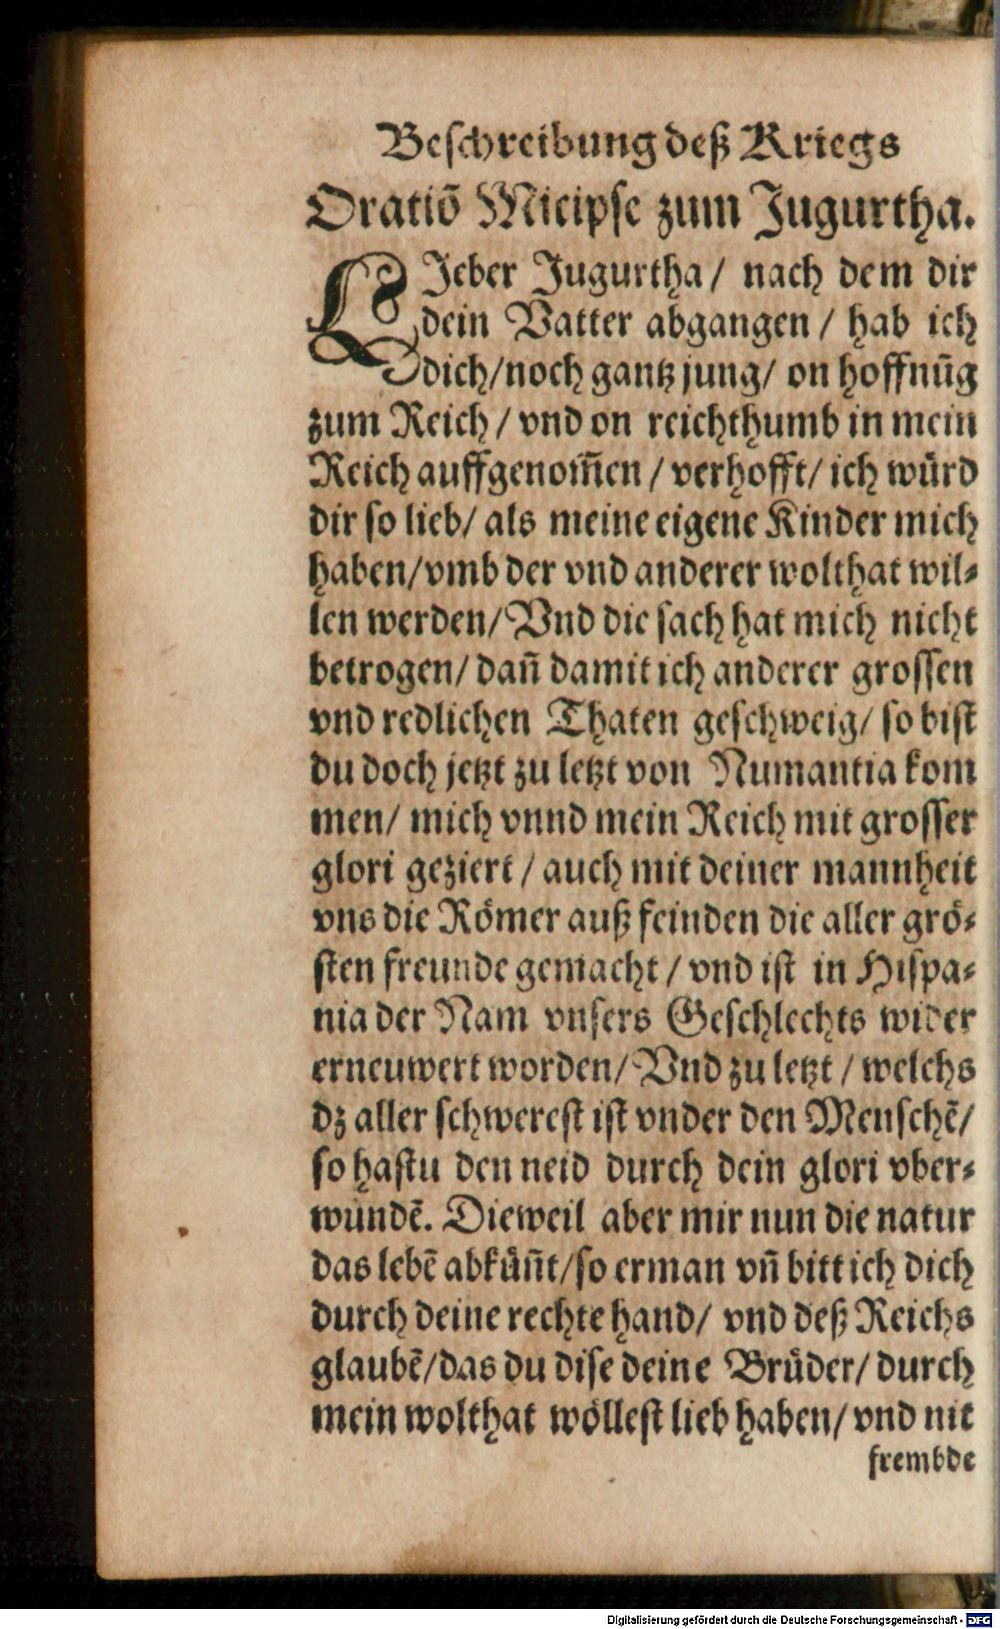 Beschreibung deß Kriegs
Oratiō Micipse zum Jugurtha.
LJeber Jugurtha/ nach dem dir
dein Vatter abgangen / hab ich
dich/noch gantz jung/ on hoffnūg
zum Reich / vnd on reichthumb in mein
Reich auffgenom̃en / verhofft/ ich wuͤrd
dir so lieb/ als meine eigene Kinder mich
haben/vmb der vnd anderer wolthat wil⸗
len werden/Vnd die sach hat mich nicht
betrogen/ dañ damit ich anderer grossen
vnd redlichen Thaten geschweig/ so bist
du doch jetzt zu letzt von Numantia kom
men/ mich vnnd mein Reich mit grosser
glori geziert / auch mit deiner mannheit
vns die Roͤmer auß feinden die aller groͤ⸗
sten freunde gemacht / vnd ist in Hispa⸗
nia der Nam vnsers Geschlechts wider
erneuwert worden/Vnd zu letzt / welchs
dz aller schwerest ist vnder den Menschē/
so hastu den neid durch dein glori vber⸗
wundē. Dieweil aber mir nun die natur
das lebē abkuͤñt/so erman vñ bitt ich dich
durch deine rechte hand/ vnd deß Reichs
glaubē/das du dise deine Bruͤder/ durch
mein wolthat woͤllest lieb haben/ vnd nit
frembde
Digitalisierung gefördert durch die Deutsche Forschungsgemeinschaft - DFG